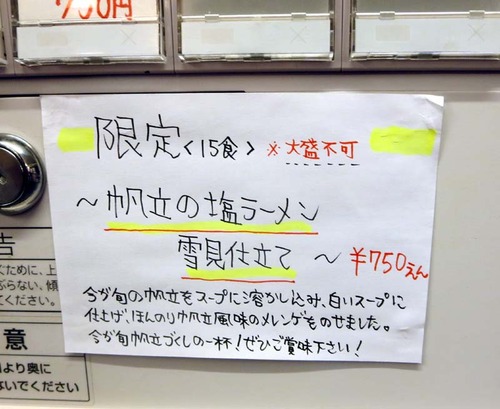 限定〈15食〉 ※大盛不可
～帆立の塩ラーメン
雪見仕立て～ ¥750えん
今が旬の帆立をスープに溶かし込み、白いスープに
仕上げ、ほんのり帆立風味のメレンゲをのせました。
今が旬帆立づくしの一杯!ぜひご賞味下さい!
告
ぐために、上
ぶらない、傾
てください。
意
より奥に
ないでください